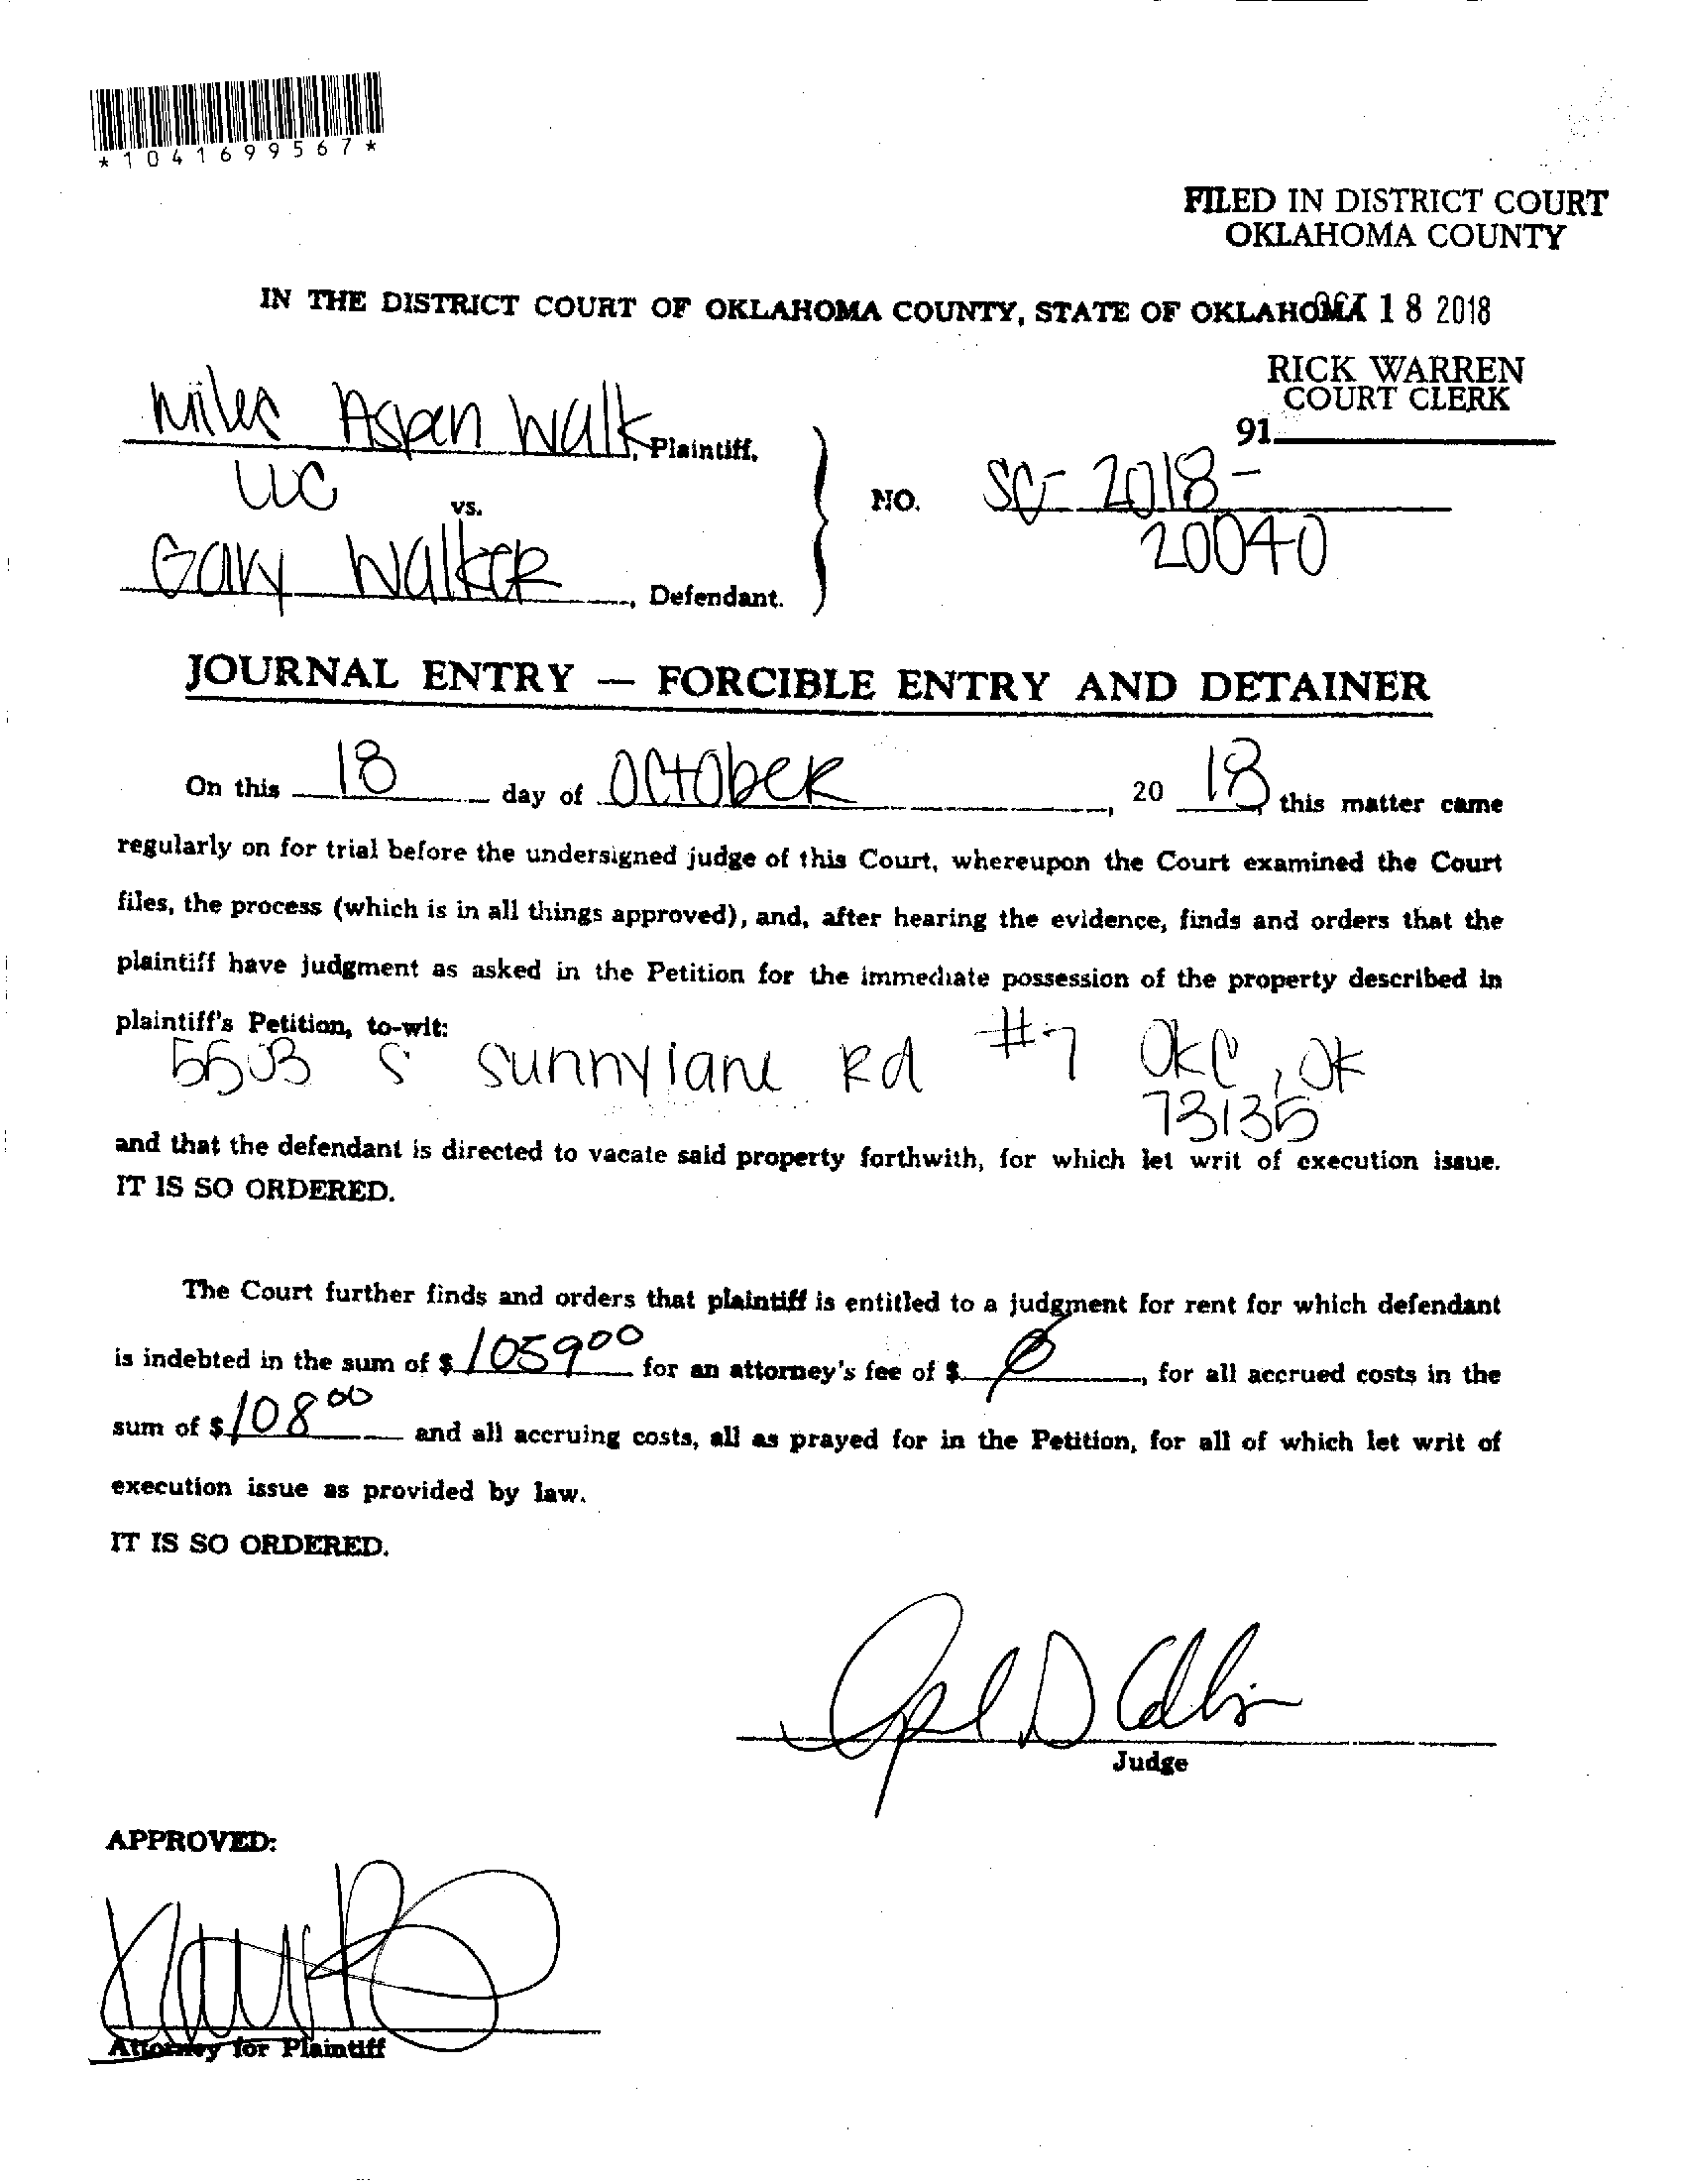 *1041699567*
FILED IN DISTRICT COURT
OKLAHOMA COUNTY
IN THE DISTRICT COURT OF OKLAHOMA COUNTY, STATE OF OKLAHOMA
OCT 18 2018
RICK WARREN
COURT CLERK
91
Miles Aspen Walk, Plaintiff,
LLC
vs.
NO. SC-2018-
20040
Gary Walker, Defendant.
JOURNAL ENTRY — FORCIBLE ENTRY AND DETAINER
On this 18 day of October, 20 18, this matter came
regularly on for trial before the undersigned judge of this Court, whereupon the Court examined the Court
files, the process (which is in all things approved), and, after hearing the evidence, finds and orders that the
plaintiff have judgment as asked in the Petition for the immediate possession of the property described in
plaintiff's Petition, to-wit:
5503 S Sunnylane Rd #7 OKC, OK
73135
and that the defendant is directed to vacate said property forthwith, for which let writ of execution issue.
IT IS SO ORDERED.
The Court further finds and orders that plaintiff is entitled to a judgment for rent for which defendant
is indebted in the sum of $ 1059 00 for an attorney's fee of $ 0, for all accrued costs in the
sum of $ 108 00 and all accruing costs, all as prayed for in the Petition, for all of which let writ of
execution issue as provided by law.
IT IS SO ORDERED.
Judge
APPROVED:
Attorney for Plaintiff